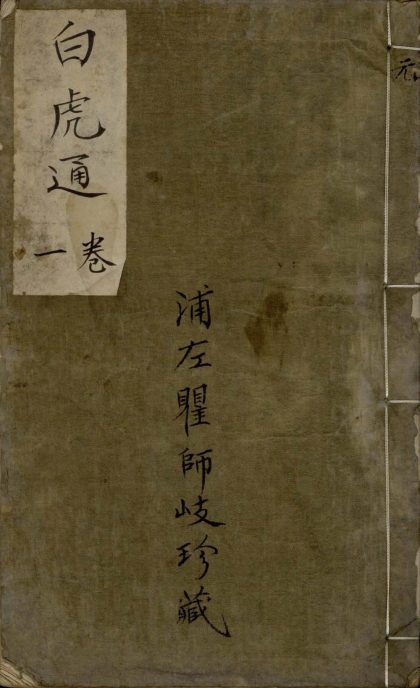 元
白虎通
卷一
浦左瞿師岐珍藏